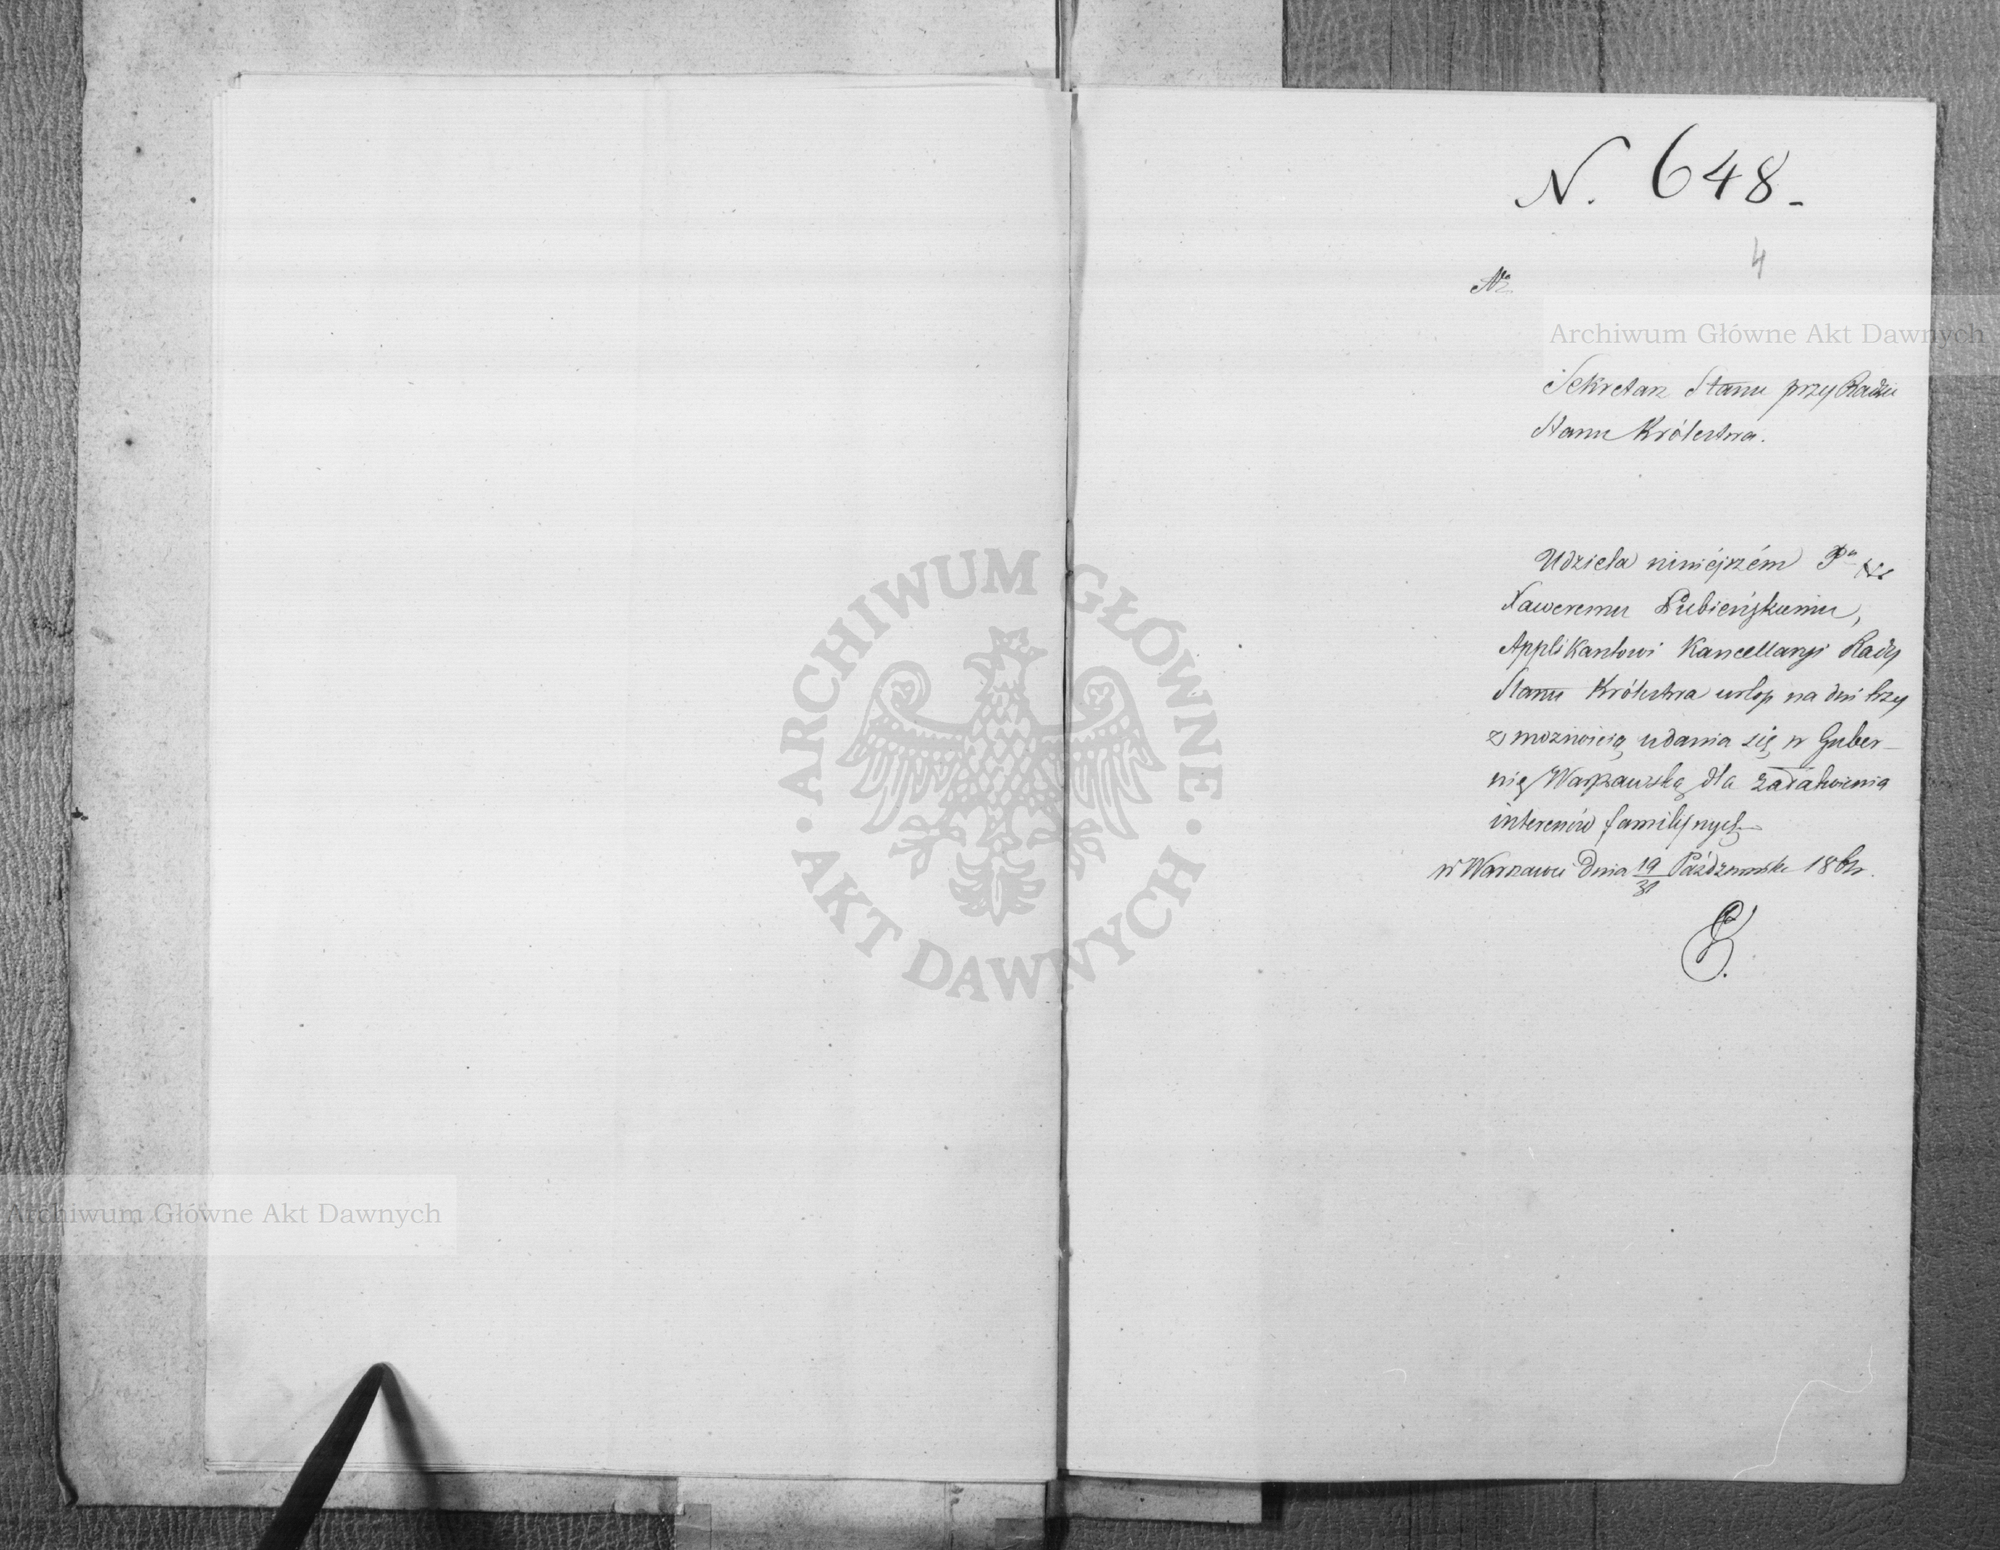 N. 648.
4
Nr
Archiwum Główne Akt Dawnych
Sekretarz Stanu przy Radzie
Stanu Królestwa.
Udziela niniéjszém Pu
Xaweremu Łubieńskiemu,
Applikantowi Kancellaryi Rady
Stanu Królestwa urlop na dni trzy
z możnością udania się w Guber-
nię Warszawską dla załatwienia
interesów familijnych
w Warszawie Dnia 19/31 Października 186
ARCHIWUM GŁÓWNE
AKT DAWNYCH
Archiwum Główne Akt Dawnych